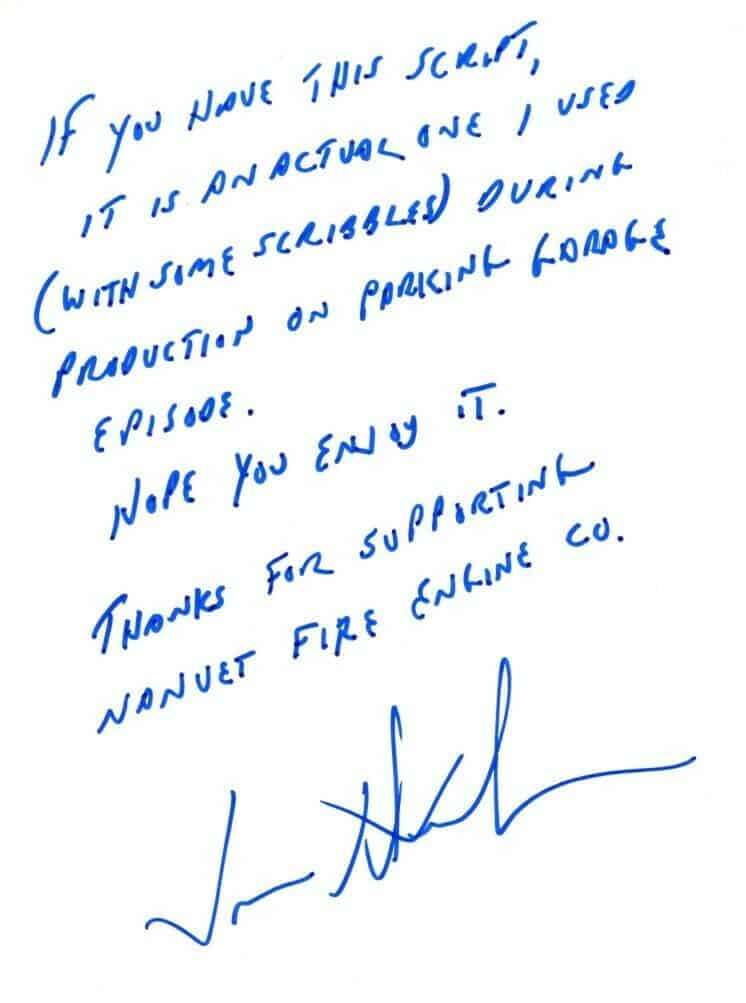 IF YOU HAVE THIS SCRIPT,
IT IS AN ACTUAL ONE I USED
(WITH SOME SCRIBBLES) DURING
PRODUCTION ON PARKING GARAGE
EPISODE.
HOPE YOU ENJOY IT.
THANKS FOR SUPPORTING
NANUET FIRE ENGINE CO.